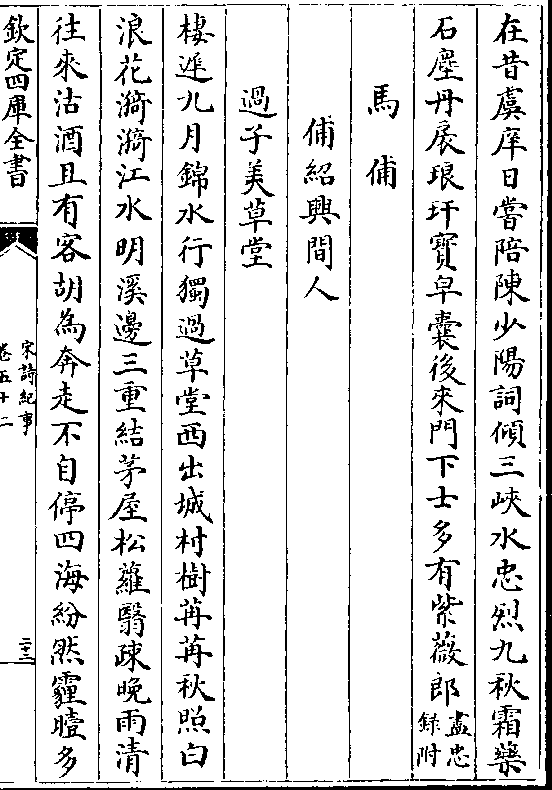 在昔虞庠日嘗陪陳少陽詞傾三峽水忠烈九秋霜藥
石塵丹扆琅玕寳皁囊後來門下士多有紫薇郎盡忠
録附
馬俌
俌紹興間人
過子美草堂
棲遲九月錦水行獨過草堂西出城村樹苒苒秋照白
浪花漪漪江水明溪邊三重結茅屋松蘿翳疎晚雨清
往來沽酒且有客胡為奔走不自停四海紛然霾曀多
欽定四庫全書
宋詩紀事
卷五十二
二十三